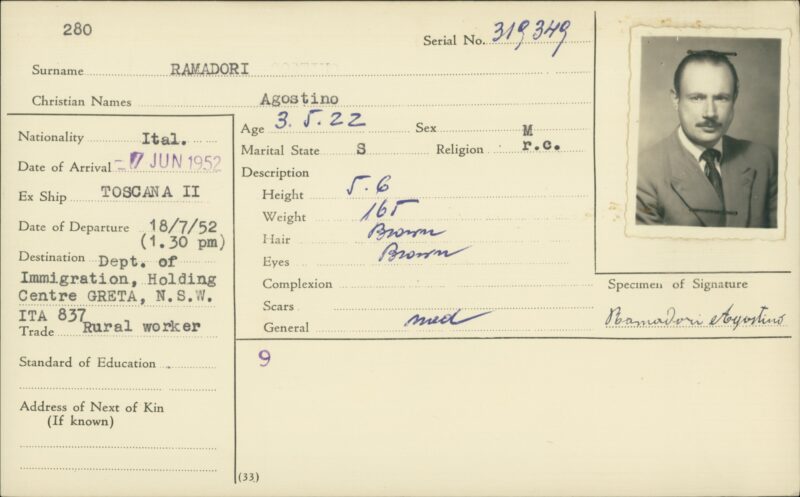 280
Serial No. 319349
Surname RAMADORI
Christian Names Agostino
Nationality Ital.
Date of Arrival - 7 JUN 1952
Ex Ship TOSCANA II
Date of Departure 18/7/52
(1.30 pm)
Destination Dept. of
Immigration, Holding
Centre GRETA, N.S.W.
ITA 837
Trade Rural worker
Standard of Education
Address of Next of Kin
(If known)
Age 3.5.22 Sex M
Marital State S Religion r.c.
Description
Height 5.6
Weight 165
Hair Brown
Eyes Brown
Complexion
Scars
General med
Specimen of Signature
Ramadori Agostino
9
(33)